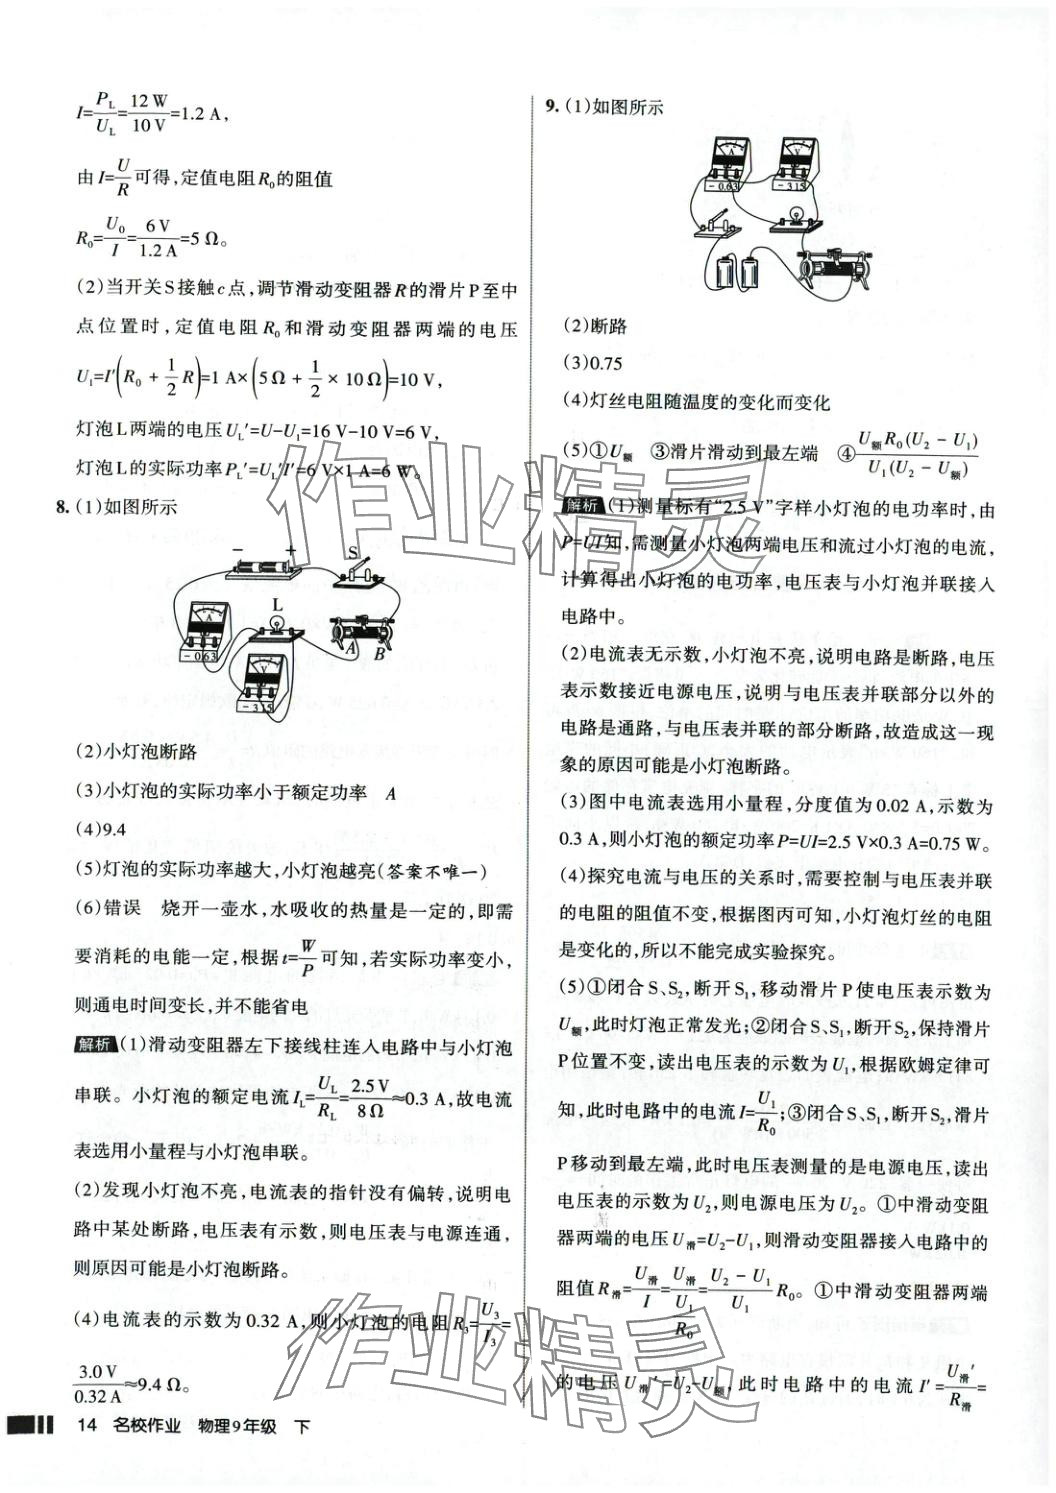 I=P_L/U_L=12 W/10 V=1.2 A，
由 I=U/R可得，定值电阻 R₀的阻值
R₀=U₀/I=6 V/1.2 A=5 Ω。
(2)当开关S接触c点，调节滑动变阻器R的滑片P至中
点位置时，定值电阻R₀和滑动变阻器两端的电压
U₁=I′(R₀+1/2R)=1 A×(5 Ω+1/2×10 Ω)=10 V，
灯泡L两端的电压U_L′=U-U₁=16 V-10 V=6 V，
灯泡L的实际功率P_L′=U_L′I′=6 V×1 A=6 W。
8. (1)如图所示
− + S
A
L
-0.63
A B
V
-3 15
(2)小灯泡断路
(3)小灯泡的实际功率小于额定功率 A
(4)9.4
(5)灯泡的实际功率越大，小灯泡越亮(答案不唯一)
(6)错误 烧开一壶水，水吸收的热量是一定的，即需
要消耗的电能一定，根据t=W/P可知，若实际功率变小，
则通电时间变长，并不能省电
解析 (1)滑动变阻器左下接线柱连入电路中与小灯泡
串联。小灯泡的额定电流I_L=U_L/R_L=2.5 V/8 Ω≈0.3 A，故电流
表选用小量程与小灯泡串联。
(2)发现小灯泡不亮，电流表的指针没有偏转，说明电
路中某处断路，电压表有示数，则电压表与电源连通，
则原因可能是小灯泡断路。
(4)电流表的示数为0.32 A，则小灯泡的电阻R₃=U₃/I₃=
3.0 V/0.32 A≈9.4 Ω。
14 名校作业 物理9年级 下
9. (1)如图所示
A V
-0.63 -3 15
(2)断路
(3)0.75
(4)灯丝电阻随温度的变化而变化
(5)①U额 ③滑片滑动到最左端 ④U额R₀(U₂-U₁)/U₁(U₂-U额)
解析 (1)测量标有“2.5 V”字样小灯泡的电功率时，由
P=UI知，需测量小灯泡两端电压和流过小灯泡的电流，
计算得出小灯泡的电功率，电压表与小灯泡并联接入
电路中。
(2)电流表无示数，小灯泡不亮，说明电路是断路，电压
表示数接近电源电压，说明与电压表并联部分以外的
电路是通路，与电压表并联的部分断路，故造成这一现
象的原因可能是小灯泡断路。
(3)图中电流表选用小量程，分度值为0.02 A，示数为
0.3 A，则小灯泡的额定功率P=UI=2.5 V×0.3 A=0.75 W。
(4)探究电流与电压的关系时，需要控制与电压表并联
的电阻的阻值不变，根据图丙可知，小灯泡灯丝的电阻
是变化的，所以不能完成实验探究。
(5)①闭合S、S₂，断开S₁，移动滑片P使电压表示数为
U额，此时灯泡正常发光；②闭合S、S₁，断开S₂，保持滑片
P位置不变，读出电压表的示数为U₁，根据欧姆定律可
知，此时电路中的电流I=U₁/R₀；③闭合S、S₁，断开S₂，滑片
P移动到最左端，此时电压表测量的是电源电压，读出
电压表的示数为U₂，则电源电压为U₂。①中滑动变阻
器两端的电压U滑=U₂-U₁，则滑动变阻器接入电路中的
阻值R滑=U滑/I=U滑/(U₁/R₀)=(U₂-U₁)/U₁ R₀。①中滑动变阻器两端
的电压U滑′=U₂-U额，此时电路中的电流I′=U滑′/R滑=
作业精灵
作业精灵